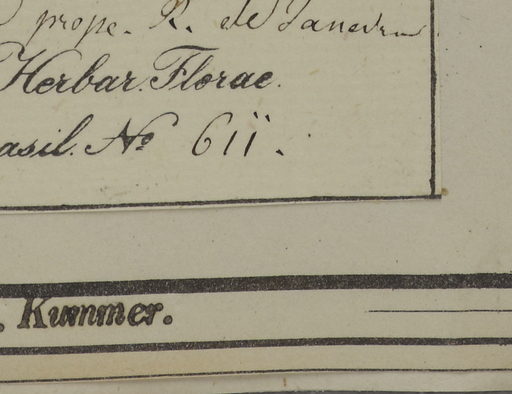 prope. R. de Janeiro
Herbar. Florae.
asil. No 611.
. Kummer.